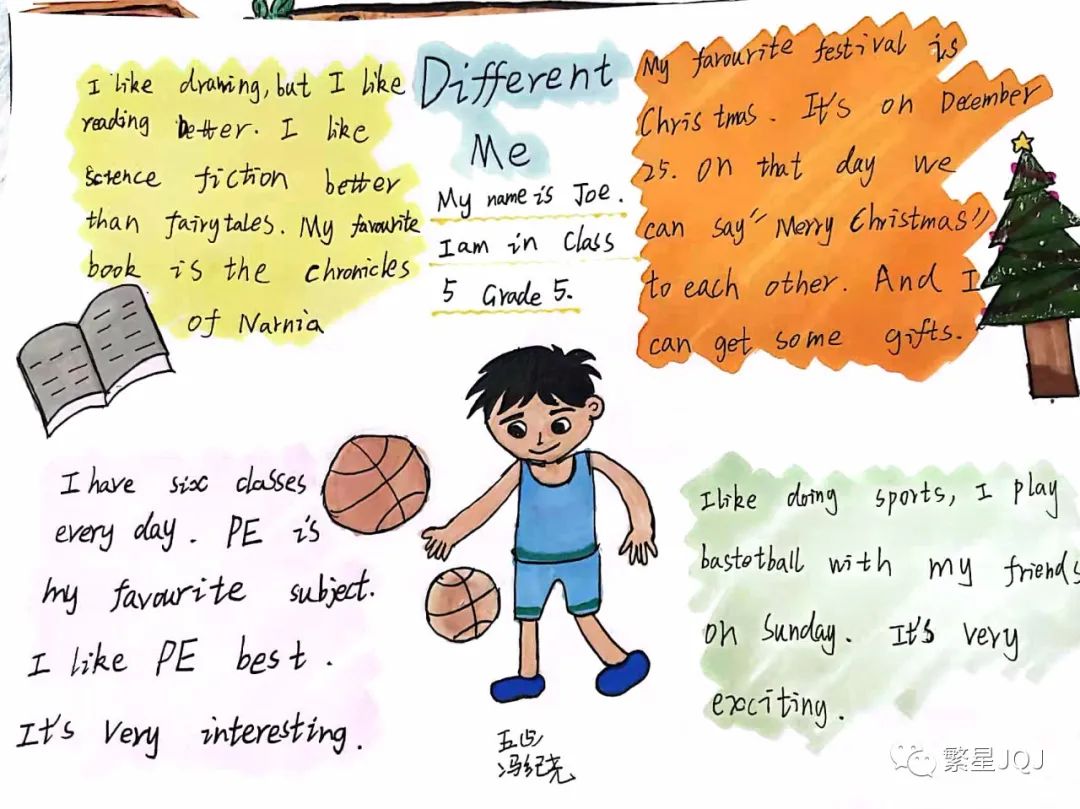 Different
Me
My name is Joe.
I am in Class
5 Grade 5.
I like drawing, but I like
reading better. I like
science fiction better
than fairytales. My favourite
book is the chronicles
of Narnia
My favourite festival is
Christmas. It's on December
25. On that day we
can say "Merry Christmas"
to each other. And I
can get some gifts.
I have six classes
every day. PE is
my favourite subject.
I like PE best.
It's very interesting.
I like doing sports, I play
bastotball with my friends
on Sunday. It's very
exciting.
冯纪尧
繁星JQJ